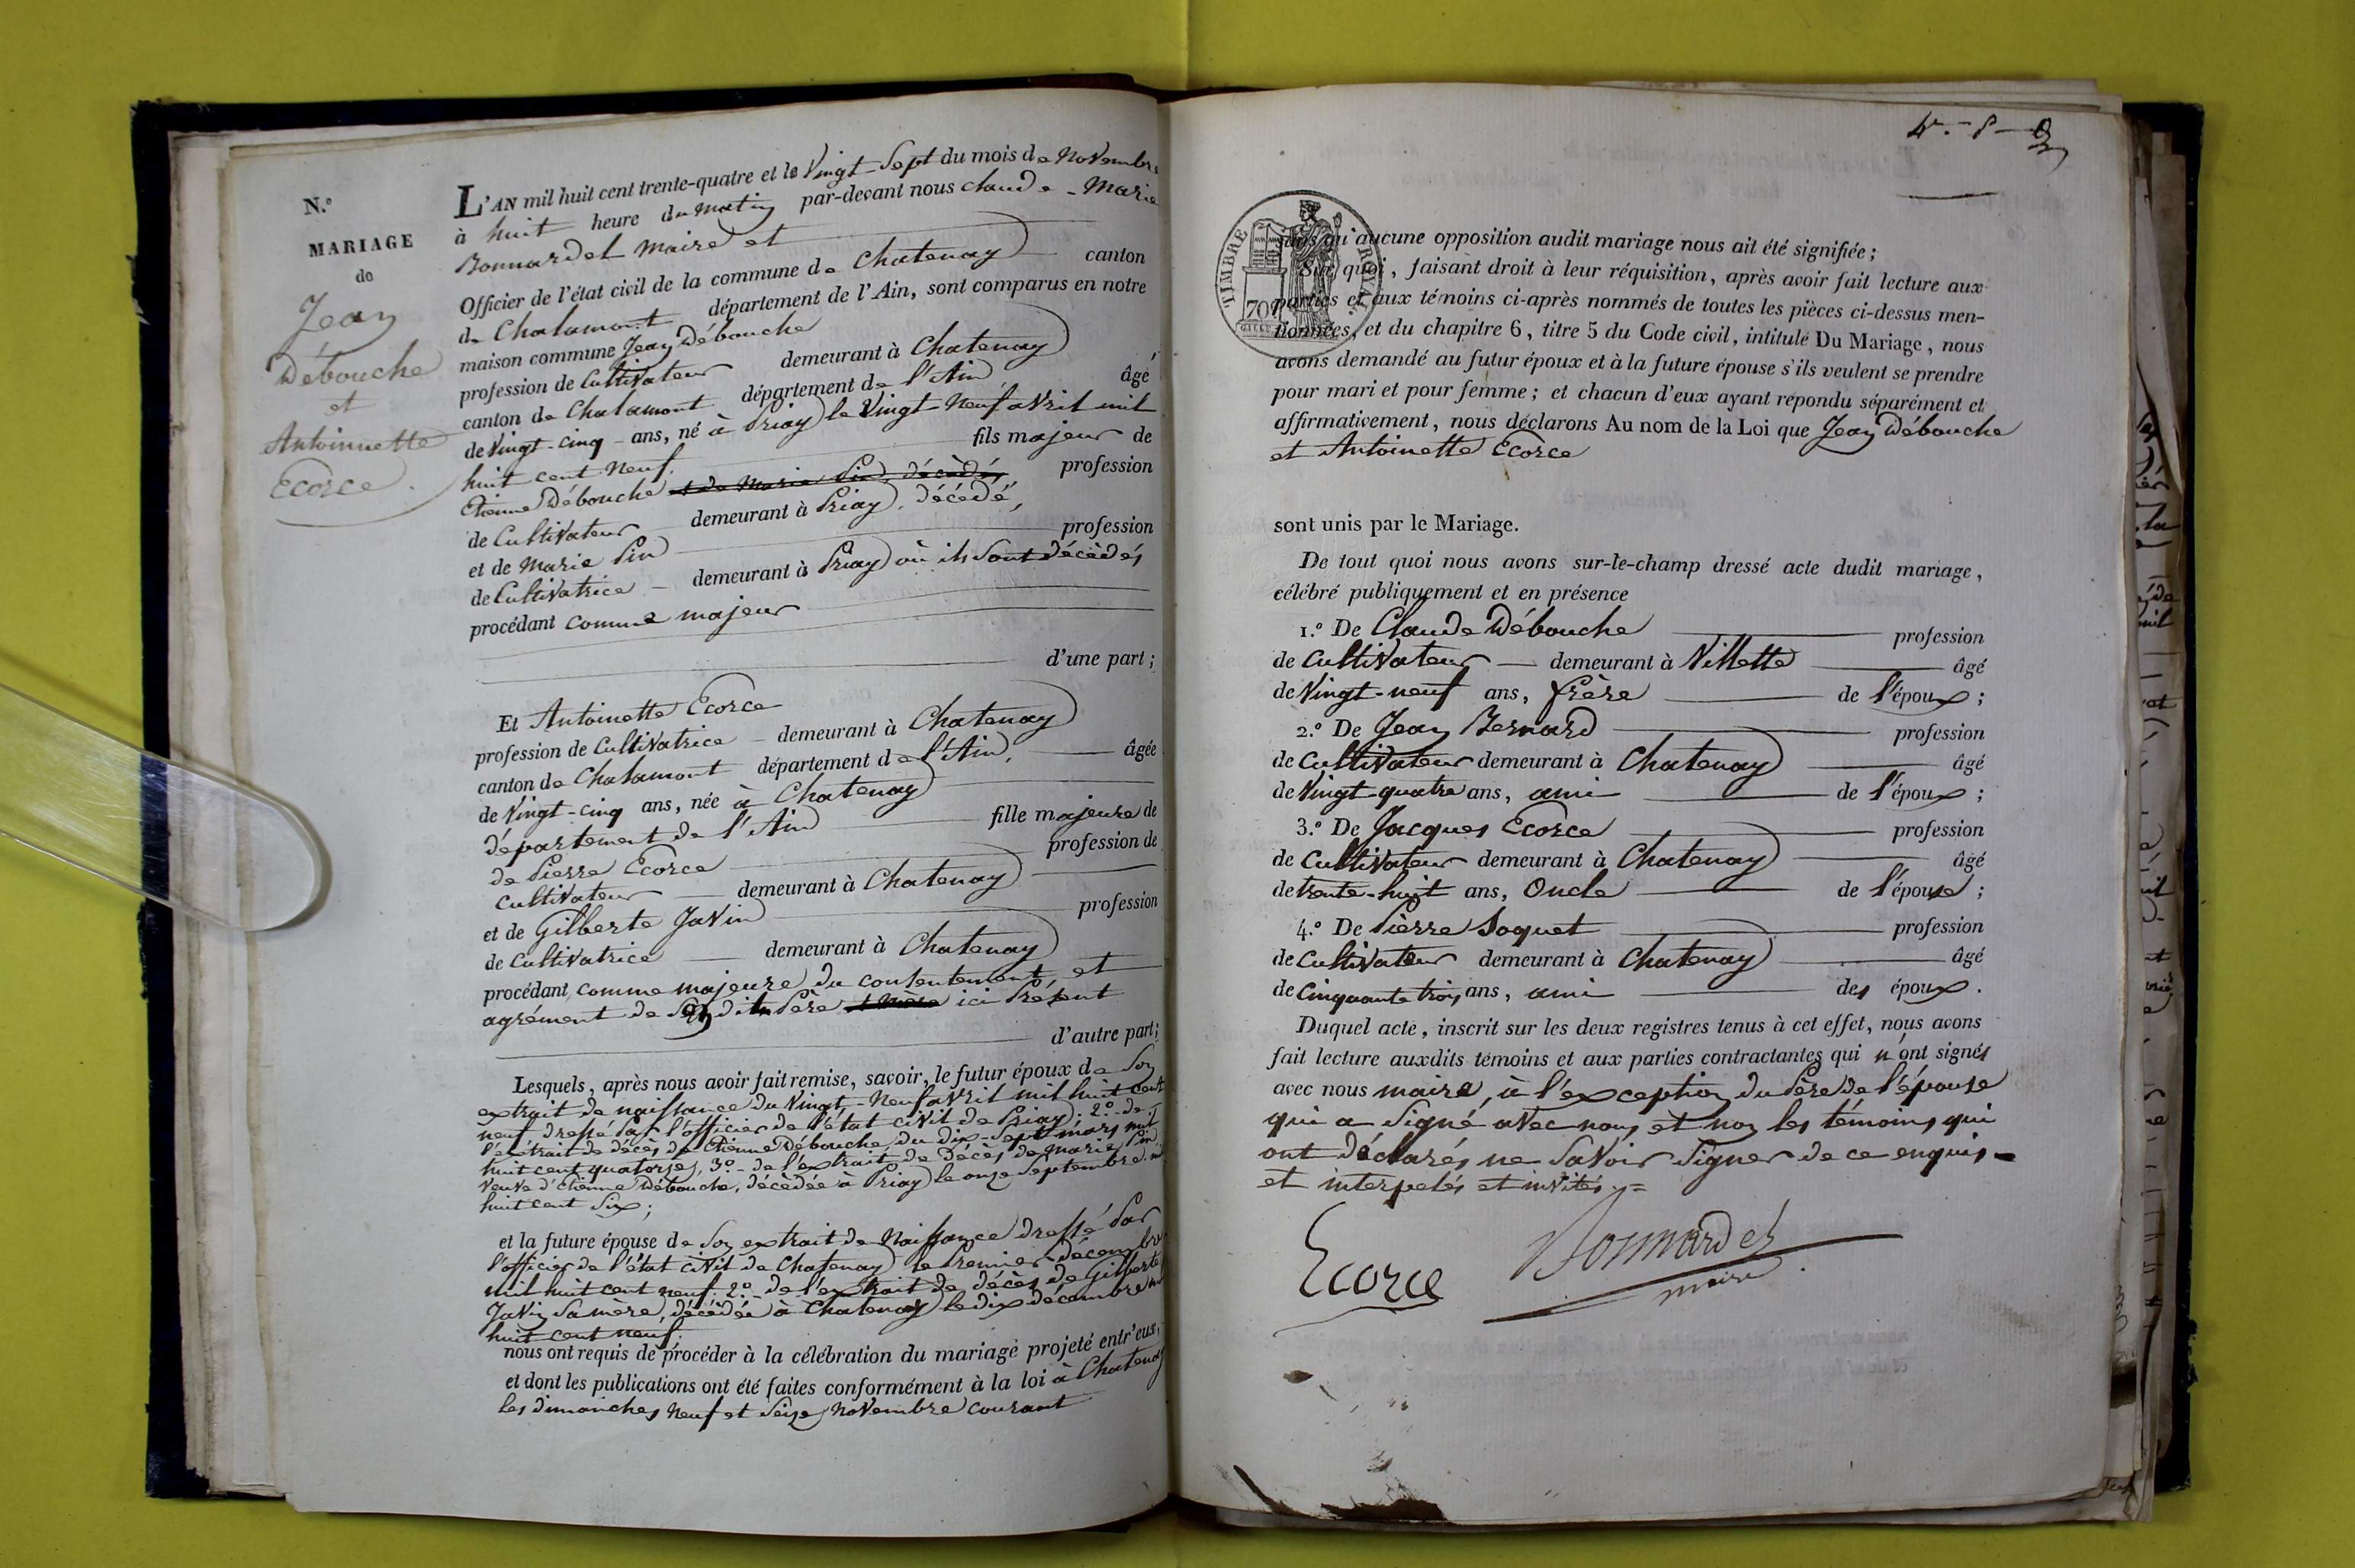 N.º
MARIAGE
de
Jean
Débouche
et
Antoinnette
Ecorce.
L'AN mil huit cent trente-quatre et le Vingt-Sept du mois de Novembre
à huit heure du matin par-devant nous Claude-Marie
Bonnardel Maire et
Officier de l'état civil de la commune de Chatenay canton
de Chalamont département de l'Ain, sont comparus en notre
maison commune Jean Débouche
profession de Cultivateur demeurant à Chatenay
canton de Chalamont département de l'Ain âgé
de Vingt-cinq ans, né à Priay le Vingt-Neuf avril mil
huit cent Neuf. fils majeur de
Etienne Débouche et de Marie Pin, décédés profession
de Cultivateur demeurant à Priay, décédé,
et de Marie Pin profession
de Cultivatrice demeurant à Priay où ils sont décédés
procédant comme majeur
d'une part ;
Et Antoinette Ecorce
profession de Cultivatrice demeurant à Chatenay
canton de Chalamont département de l'Ain, âgée
de Vingt-cinq ans, née à Chatenay
département de l'Ain fille majeure de
de Pierre Ecorce profession de
Cultivateur demeurant à Chatenay
et de Gilberte Javin profession
de Cultivatrice demeurant à Chatenay
procédant comme majeure du consentement, et
agrément de son dit Père et mère ici Présent
d'autre part ;
Lesquels, après nous avoir fait remise, savoir, le futur époux de Son
extrait de naissance du Vingt-Neuf avril mil huit cent
neuf dressé par l'officier de l'état civil de Priay; 2º de
l'extrait de décès de Etienne Débouche, du dix-Sept mars mil
huit cent quatorze, 3º de l'extrait de Décès de Marie Pin
veuve d'Etienne Débouche, décédée à Priay le onze Septembre
huit cent Six ;
et la future épouse de Son extrait de Naissance dressé Par
l'officier de l'état civil de Chatenay le Premier décembre
mil huit cent neuf. 2º de l'extrait de décès de Gilberte
Javin Sa mère, décédée à Chatenay le dix décembre
huit cent neuf.
nous ont requis de procéder à la célébration du mariage projeté entr'eux,
et dont les publications ont été faites conformément à la loi à Chatenay
les dimanches Neuf et Seize Novembre courant
TIMBRE ROYAL
70
sans qu'aucune opposition audit mariage nous ait été signifiée ;
Sur quoi, faisant droit à leur réquisition, après avoir fait lecture aux
parties et aux témoins ci-après nommés de toutes les pièces ci-dessus men-
tionnées, et du chapitre 6, titre 5 du Code civil, intitulé Du Mariage, nous
avons demandé au futur époux et à la future épouse s'ils veulent se prendre
pour mari et pour femme ; et chacun d'eux ayant répondu séparément et
affirmativement, nous déclarons Au nom de la Loi que Jean Débouche
et Antoinette Ecorce
sont unis par le Mariage.
De tout quoi nous avons sur-le-champ dressé acte dudit mariage,
célébré publiquement et en présence
1.º De Claude Débouche profession
de Cultivateur demeurant à Villette âgé
de Vingt-neuf ans, frère de l'époux ;
2.º De Jean Bernard profession
de Cultivateur demeurant à Chatenay âgé
de Vingt-quatre ans, ami de l'époux ;
3.º De Jacques Ecorce profession
de Cultivateur demeurant à Chatenay âgé
de trente-huit ans, Oncle de l'épouse ;
4.º De Pierre Soquet profession
de Cultivateur demeurant à Chatenay âgé
de Cinquante trois ans, ami des époux.
Duquel acte, inscrit sur les deux registres tenus à cet effet, nous avons
fait lecture auxdits témoins et aux parties contractantes qui n'ont signés
avec nous maire, à l'exception du Père de l'épouse
qui a Signé avec nous et non les témoins qui
ont déclarés ne Savoir Signer de ce enquis
et interpelés et invités.
Ecorce Bonnardel
maire